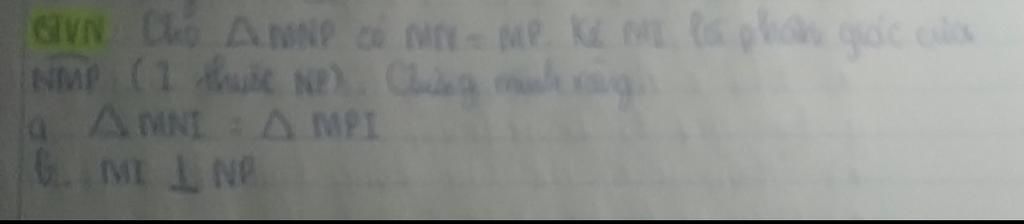 BTVN Cho △MNP có MN = MP. Kẻ MI là phân giác của
NMP (I thuộc NP). Chứng minh rằng
a △MNI = △MPI
b. MI ⊥ NP